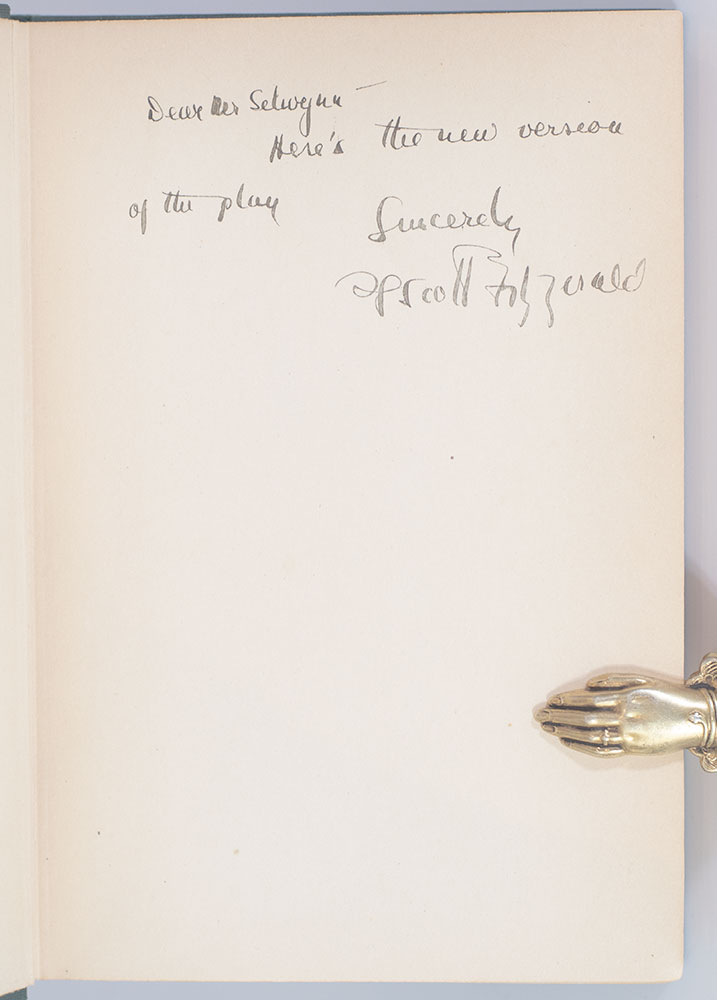 Dear Mr Selwynn —
Here's the new version
of the play
Sincerely
F Scott Fitzgerald